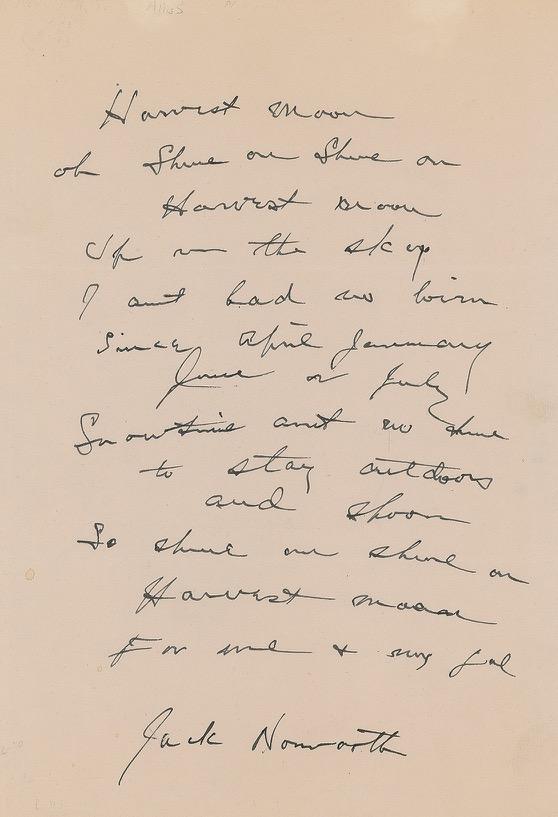 Harvest Moon
oh Shine on Shine on
Harvest Moon
Up in the sky
I aint had no lovin
Since April January
June or July
Snowtime aint no time
to stay outdoors
and spoon
So shine on shine on
Harvest moon
For me + my gal
Jack Norworth